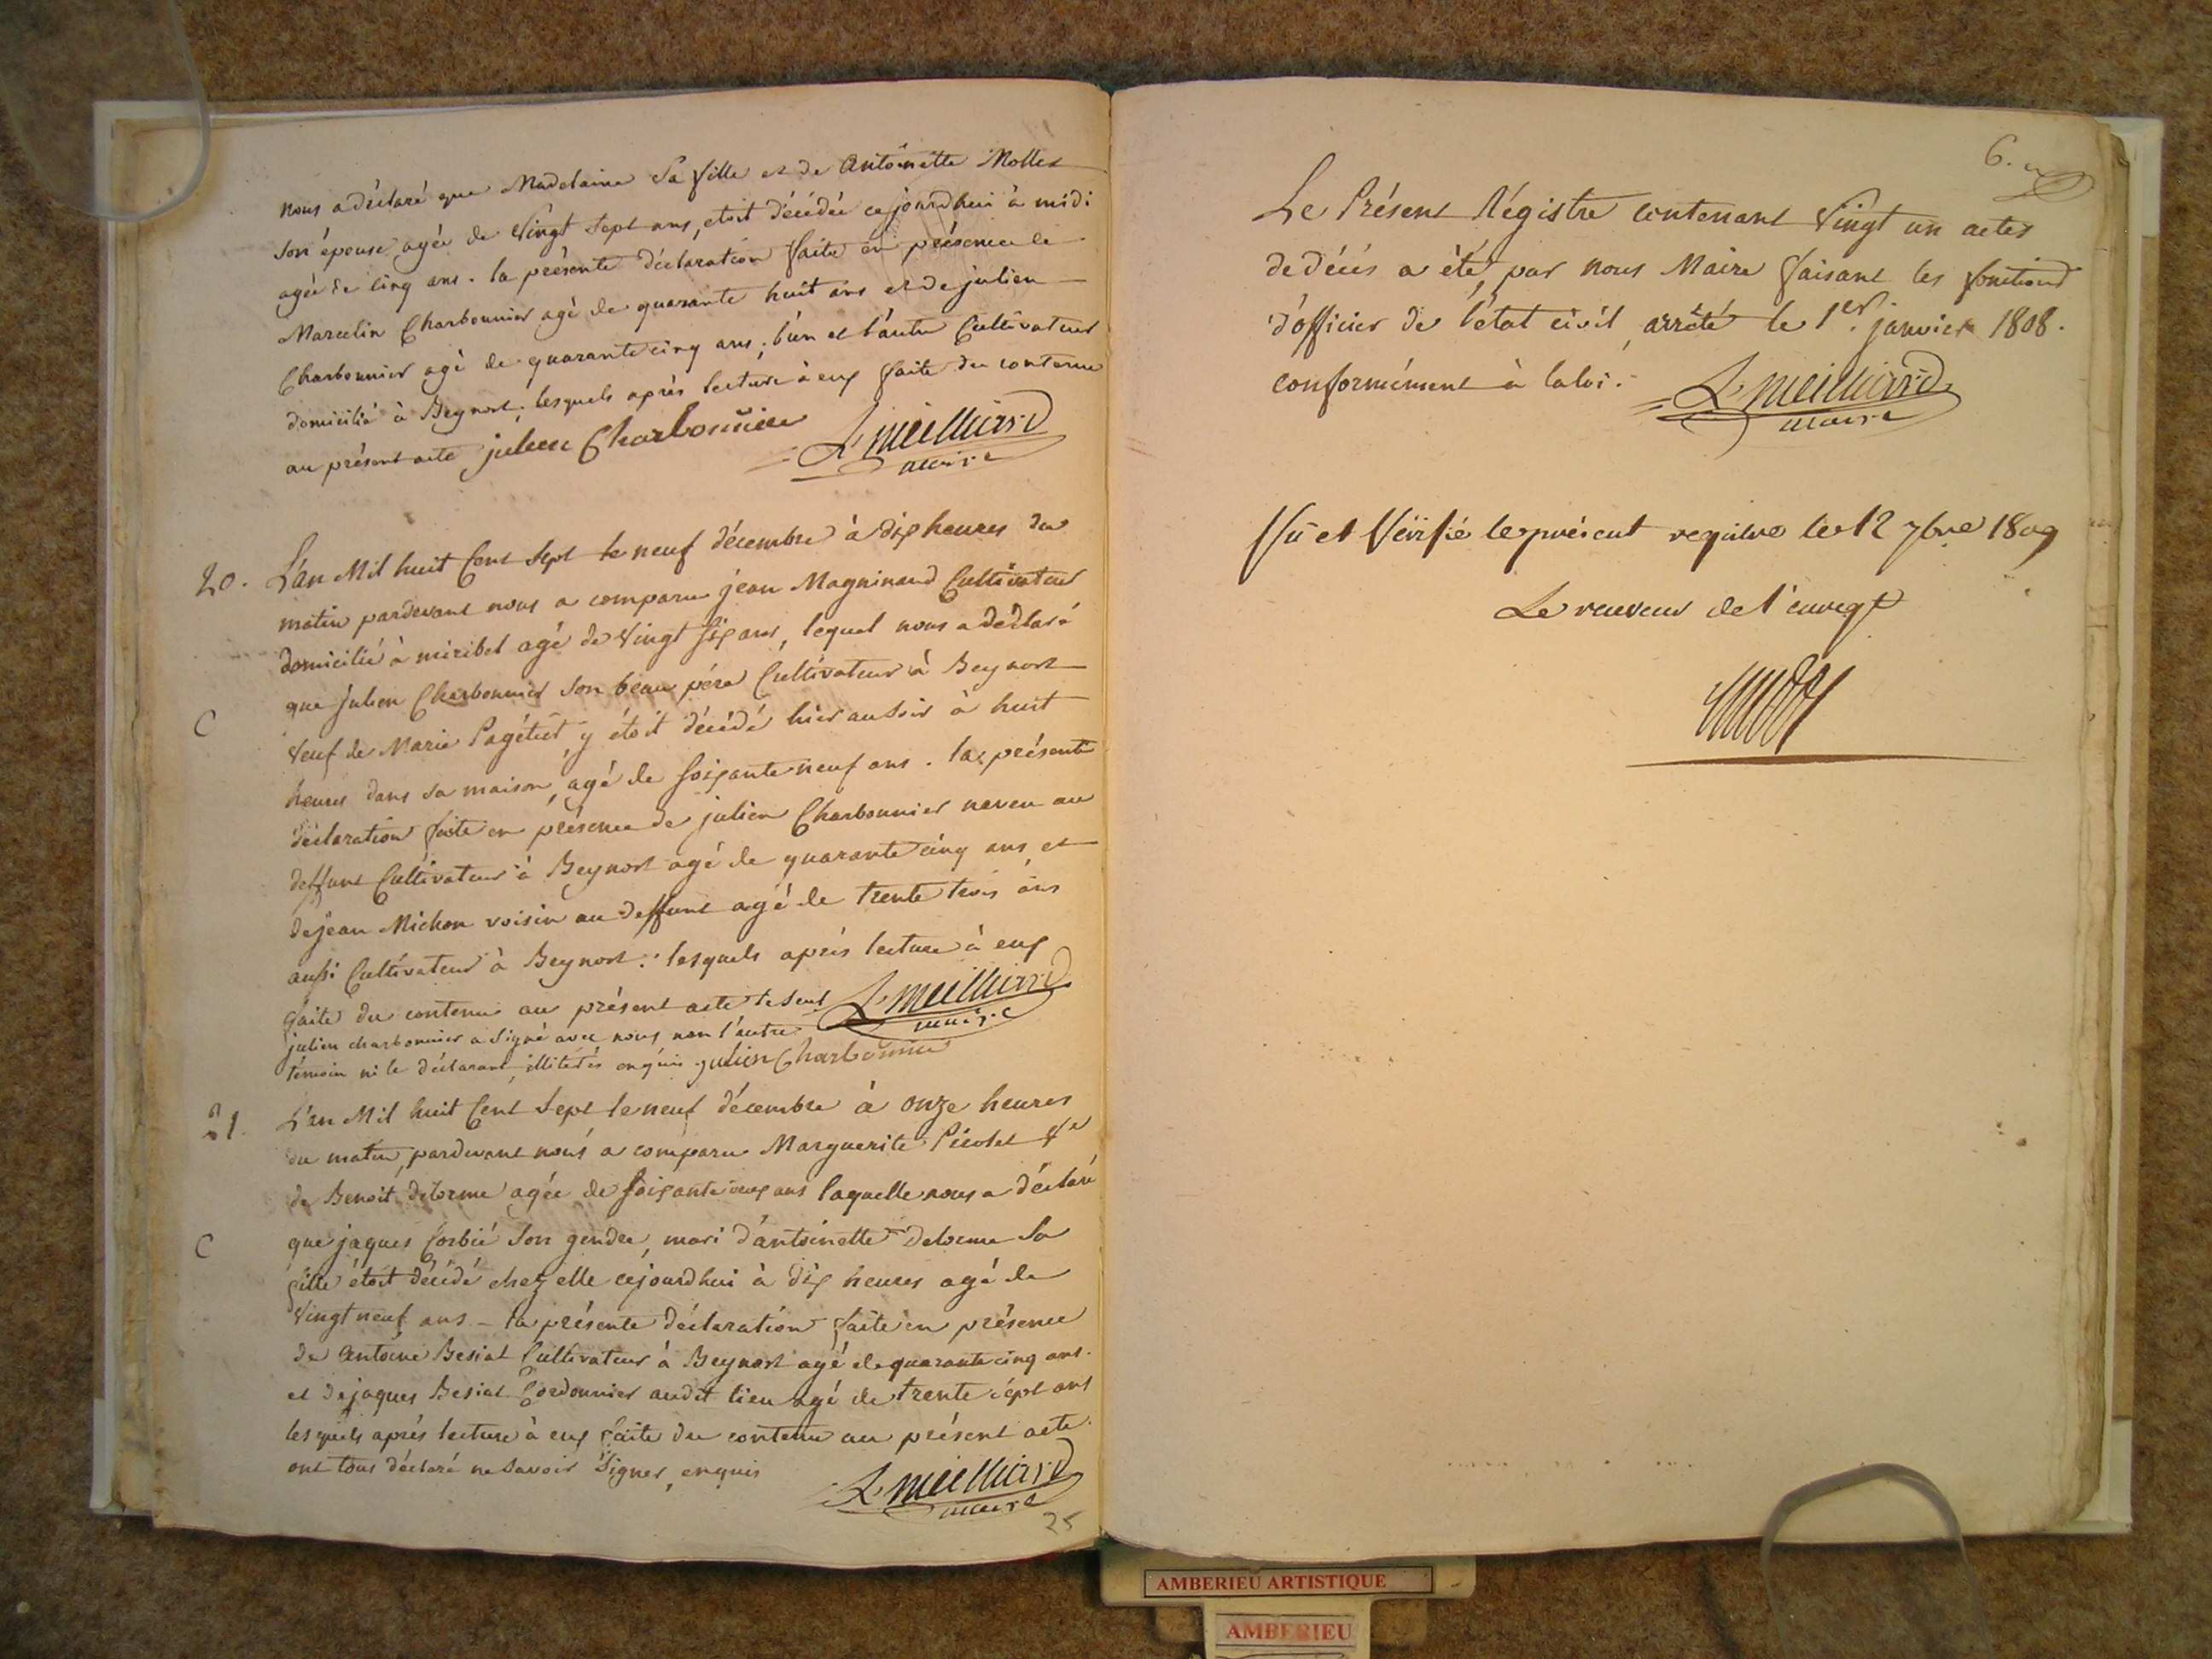 nous a déclaré que Madelaine sa fille et de Antoinette Mollet
son épouse agée de vingt sept ans, etoit décédée cejourdhui à midi
agée de cinq ans. la présente déclaration faite en présence de
Marcelin Charbonnier agé de quarante huit ans et de julien
Charbonnier agé de quarante cinq ans, l'un et l'autre Cultivateur
domicilié à Beynost, lesquels après lecture à eux faite du contenu
au présent acte julien Charbonnier L. Meilliard
maire
20. L'an Mil huit Cent Sept le neuf décembre à dix heures du
matin pardevant nous a comparu jean Magninand Cultivateur
domicilié à miribel agé de vingt six ans, lequel nous a déclaré
que julien Charbonnier son beau père Cultivateur à Beynost
C
veuf de Marie Pagétiet, y étoit décédé hier au soir à huit
heures dans sa maison, agé de soixante neuf ans. la présente
déclaration faite en présence de julien Charbonnier neveu au
deffunt Cultivateur à Beynost agé de quarante cinq ans, et
de jean Michon voisin au deffunt agé de trente trois ans
aussi Cultivateur à Beynost: lesquels après lecture à eux
faite du contenu au présent acte le seul L. Meilliard
julien charbonnier a signé avec nous non l'autre maire
témoin ni le déclarant, illitérés enquis julien Charbonnier
21. L'an Mil huit Cent Sept le neuf décembre à onze heures
du matin, pardevant nous a comparu Marguerite Picolet Ve
de Benoit delorme agée de soixante ans laquelle nous a déclaré
C
que jaques Corbié son gendre, mari d'antoinette Delorme sa
fille étoit décédé chez elle cejourdhui à dix heures agé de
vingt neuf ans - la présente déclaration faite en présence
de Antoine Besiat Cultivateur à Beynost agé de quarante cinq ans.
et de jaques Besiat Cordonnier audit lieu agé de trente sept ans
lesquels après lecture à eux faite du contenu au présent acte
ont tous déclaré ne savoir signer, enquis
L. Meilliard
maire
25
6.
Le Présent Régistre contenant vingt un actes
de décès a été, par nous Maire faisant les fonctions
d'officier de l'état civil, arrêté le 1er. janvier 1808.
conformément à la loi. L. Meilliard
maire
Vu et Vérifié le présent registre le 12 7bre 1809
Le receveur de l'enregt
AMBERIEU ARTISTIQUE
AMBERIEU